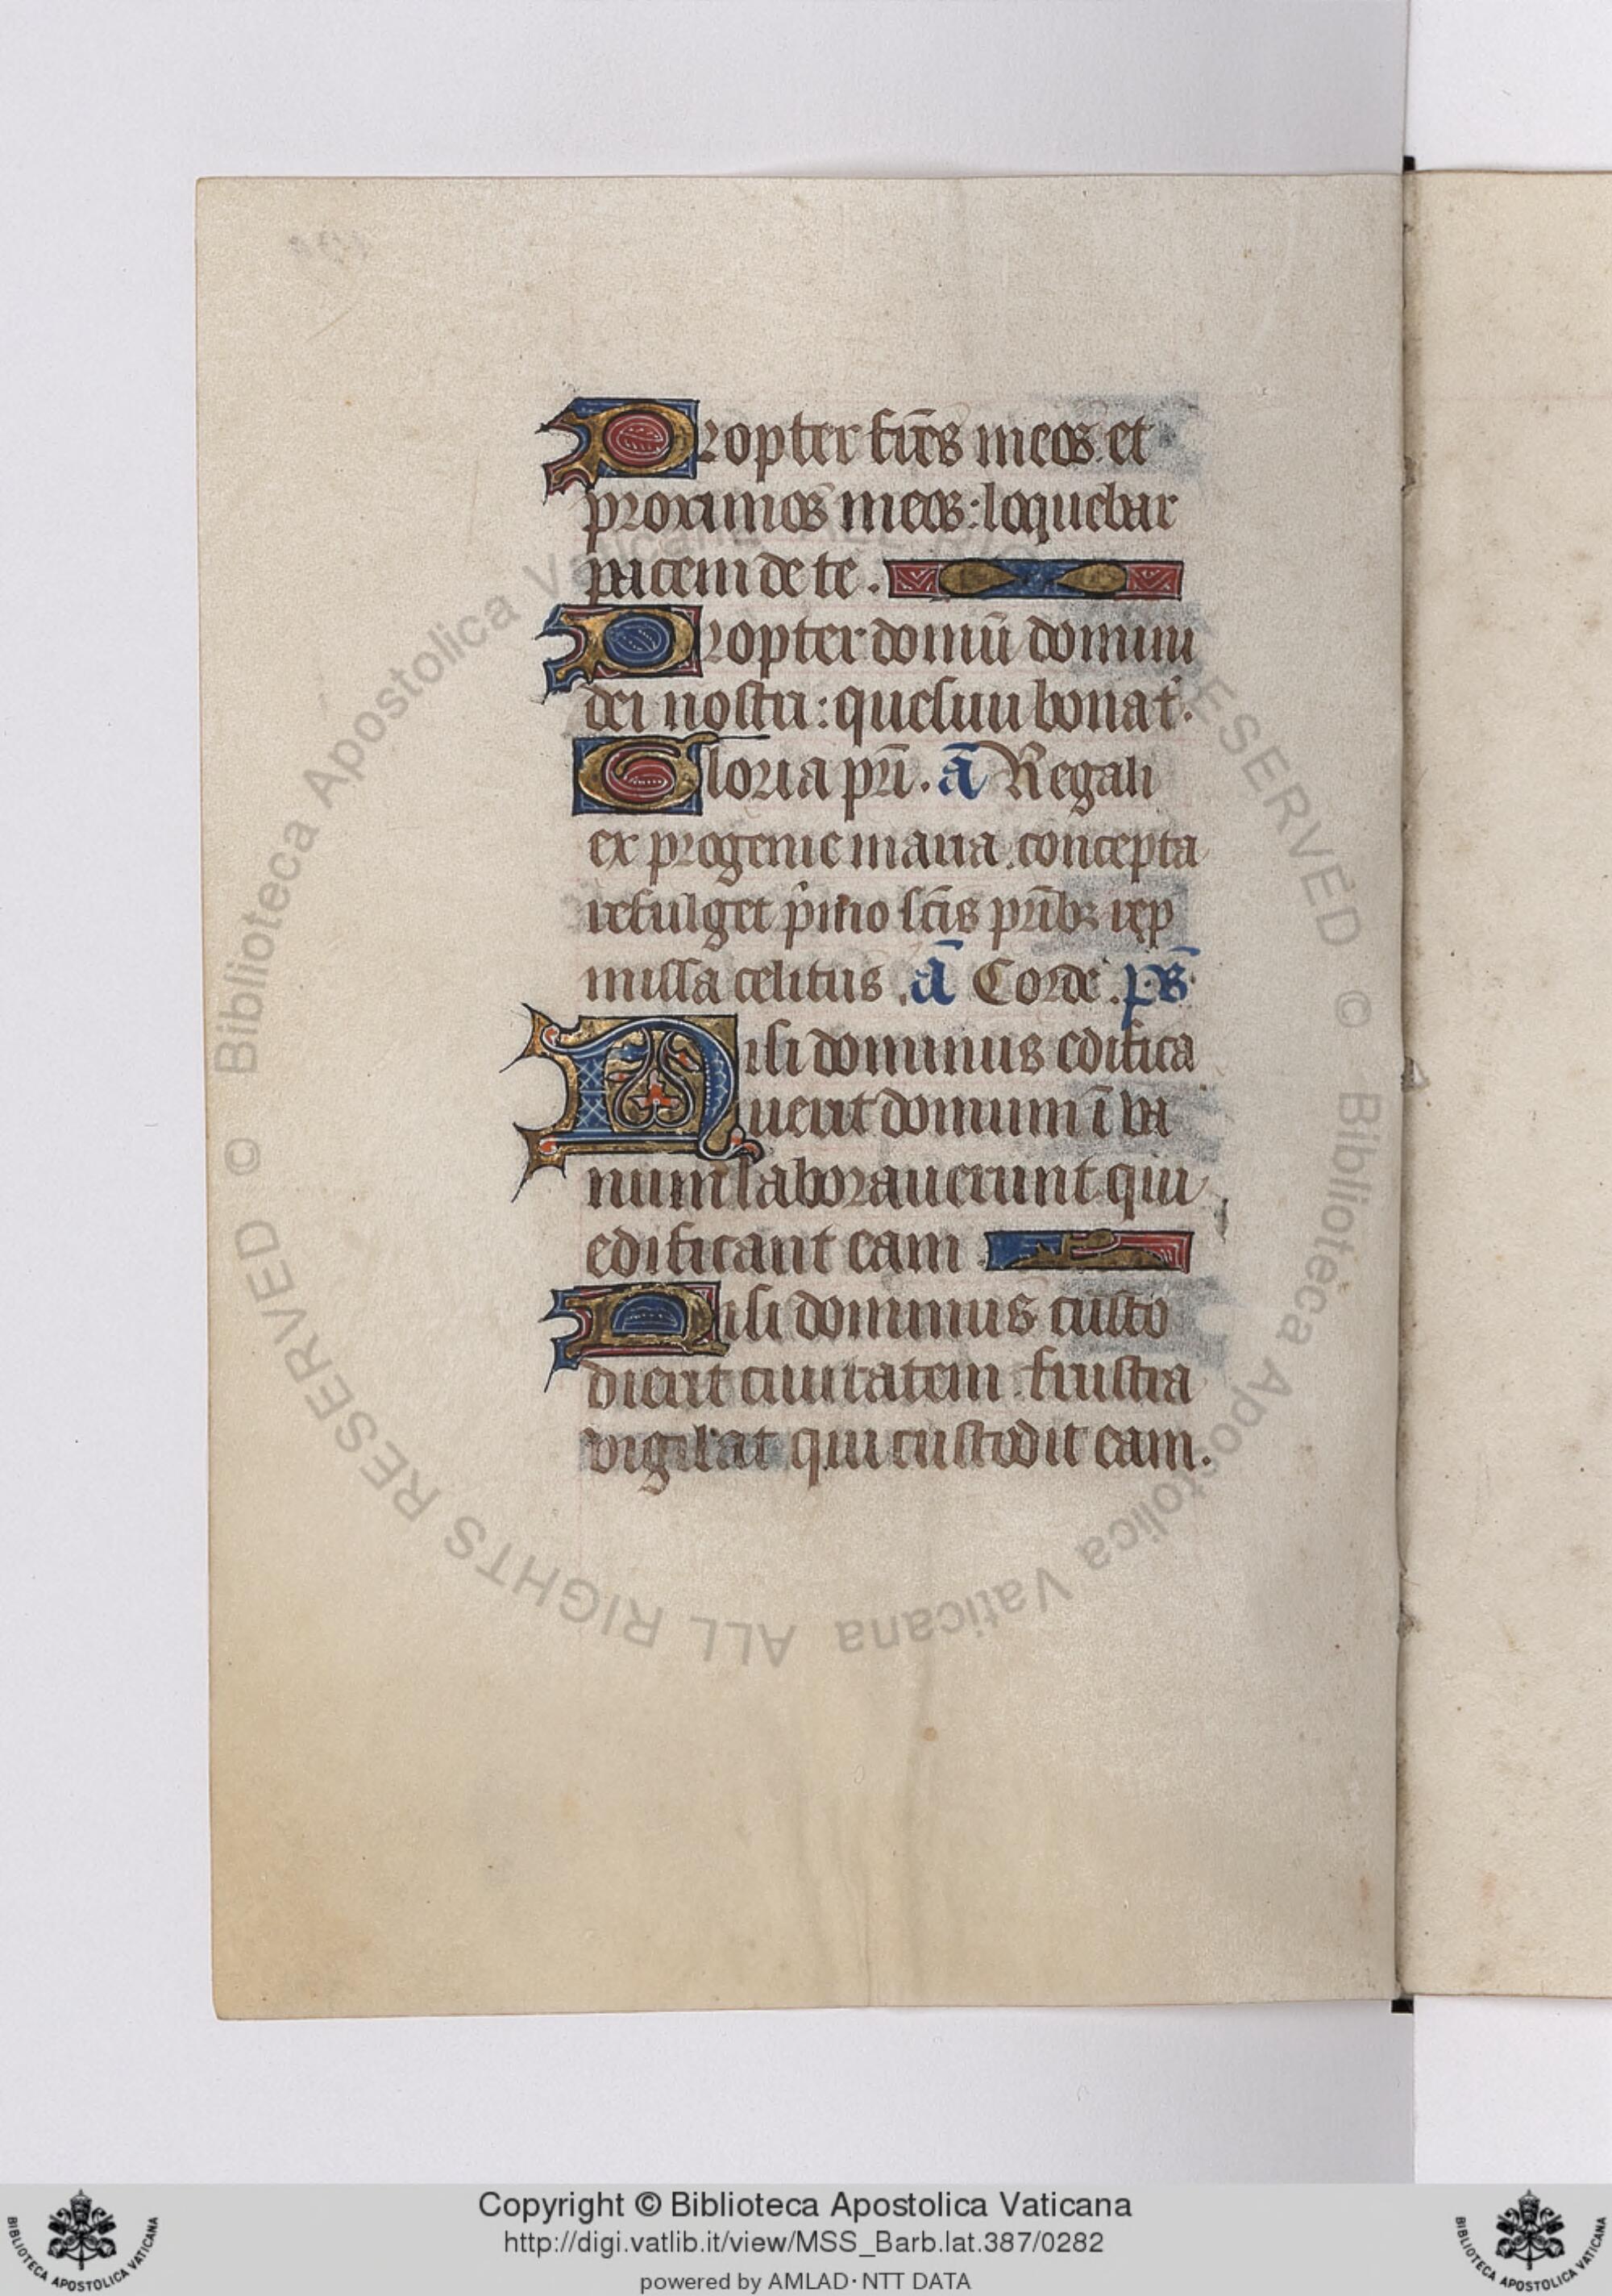 Propter fr̄es meos. et
proximos meos: loquebar
pacem de te.
Propter domū domini
dei nostri: quesiui bona t'.
Gloria pr̄i. ā Regali
ex progenie maria. concepta
refulget
missa celitus. ā Corde. ps̄
Nisi dominus edifica
uerit domum ī va
num laborauerunt qui
edificant eam
Nisi dominus custo
dierit ciuitatem. frustra
vigilat qui custodit eam.
© Biblioteca Apostolica Vaticana ALL RIGHTS RESERVED © Biblioteca Apostolica Vaticana ALL RIGHTS RESERVED
Copyright © Biblioteca Apostolica Vaticana
http://digi.vatlib.it/view/MSS_Barb.lat.387/0282
powered by AMLAD·NTT DATA
BIBLIOTECA APOSTOLICA VATICANA
BIBLIOTECA APOSTOLICA VATICANA